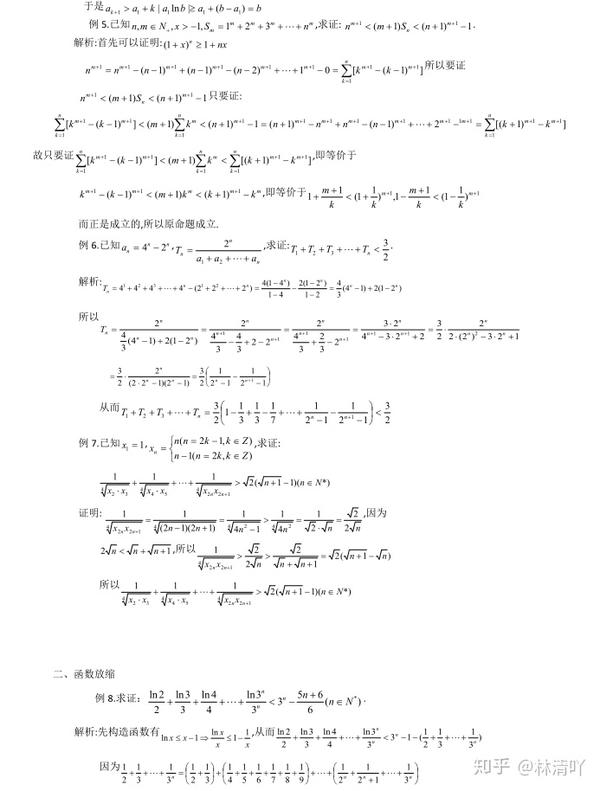 于是 a_{k+1} > a_1 + k | a_1 ln b |≥ a_1 + (b - a_1) = b
例 5.已知 n, m ∈ N_+, x > -1, S_m = 1^m + 2^m + 3^m + ⋯ + n^m, 求证: n^{m+1} < (m+1)S_n < (n+1)^{m+1} - 1.
解析:首先可以证明: (1+x)^n ≥ 1 + nx
n^{m+1} = n^{m+1} - (n-1)^{m+1} + (n-1)^{m+1} - (n-2)^{m+1} + ⋯ + 1^{m+1} - 0 = ∑_{k=1}^{n}[k^{m+1} - (k-1)^{m+1}] 所以要证
n^{m+1} < (m+1)S_n < (n+1)^{m+1} - 1 只要证:
∑_{k=1}^{n}[k^{m+1} - (k-1)^{m+1}] < (m+1)∑_{k=1}^{n}k^m < (n+1)^{m+1} - 1 = (n+1)^{m+1} - n^{m+1} + n^{m+1} - (n-1)^{m+1} + ⋯ + 2^{m+1} - 1^{m+1} = ∑_{k=1}^{n}[(k+1)^{m+1} - k^{m+1}]
故只要证 ∑_{k=1}^{n}[k^{m+1} - (k-1)^{m+1}] < (m+1)∑_{k=1}^{n}k^m < ∑_{k=1}^{n}[(k+1)^{m+1} - k^{m+1}], 即等价于
k^{m+1} - (k-1)^{m+1} < (m+1)k^m < (k+1)^{m+1} - k^m, 即等价于 1 + \frac{m+1}{k} < (1+\frac{1}{k})^{m+1}, 1 - \frac{m+1}{k} < (1-\frac{1}{k})^{m+1}
而正是成立的,所以原命题成立.
例 6.已知 a_n = 4^n - 2^n, T_n = \frac{2^n}{a_1 + a_2 + ⋯ + a_n}, 求证: T_1 + T_2 + T_3 + ⋯ + T_n < \frac{3}{2}.
解析: T_n = 4^1 + 4^2 + 4^3 + ⋯ + 4^n - (2^1 + 2^2 + ⋯ + 2^n) = \frac{4(1-4^n)}{1-4} - \frac{2(1-2^n)}{1-2} = \frac{4}{3}(4^n - 1) + 2(1-2^n)
所以
T_n = \frac{2^n}{\frac{4}{3}(4^n-1) + 2(1-2^n)} = \frac{2^n}{\frac{4^{n+1}}{3} - \frac{4}{3} + 2 - 2^{n+1}} = \frac{2^n}{\frac{4^{n+1}}{3} + \frac{2}{3} - 2^{n+1}} = \frac{3·2^n}{4^{n+1} - 3·2^{n+1} + 2} = \frac{3}{2}·\frac{2^n}{2·(2^n)^2 - 3·2^n + 1}
= \frac{3}{2}·\frac{2^n}{(2·2^n-1)(2^n-1)} = \frac{3}{2}(\frac{1}{2^n-1} - \frac{1}{2^{n+1}-1})
从而 T_1 + T_2 + T_3 + ⋯ + T_n = \frac{3}{2}(1 - \frac{1}{3} + \frac{1}{3} - \frac{1}{7} + ⋯ + \frac{1}{2^n-1} - \frac{1}{2^{n+1}-1}) < \frac{3}{2}
例 7.已知 x_1 = 1, x_n = { n(n = 2k-1, k ∈ Z) n-1(n = 2k, k ∈ Z) , 求证:
\frac{1}{\sqrt[4]{x_2·x_3}} + \frac{1}{\sqrt[4]{x_4·x_5}} + ⋯ + \frac{1}{\sqrt[4]{x_{2n}x_{2n+1}}} > √2(√{n+1} - 1)(n ∈ N*)
证明: \frac{1}{\sqrt[4]{x_{2n}x_{2n+1}}} = \frac{1}{\sqrt[4]{(2n-1)(2n+1)}} = \frac{1}{\sqrt[4]{4n^2-1}} > \frac{1}{\sqrt[4]{4n^2}} = \frac{1}{√2·√n} = \frac{√2}{2√n}, 因为
2√n < √n + √{n+1}, 所以 \frac{1}{\sqrt[4]{x_{2n}x_{2n+1}}} > \frac{√2}{2√n} > \frac{√2}{√n + √{n+1}} = √2(√{n+1} - √n)
所以 \frac{1}{\sqrt[4]{x_2·x_3}} + \frac{1}{\sqrt[4]{x_4·x_5}} + ⋯ + \frac{1}{\sqrt[4]{x_{2n}x_{2n+1}}} > √2(√{n+1} - 1)(n ∈ N*)
二、函数放缩
例 8.求证: \frac{ln2}{2} + \frac{ln3}{3} + \frac{ln4}{4} + ⋯ + \frac{ln3^n}{3^n} < 3^n - \frac{5n+6}{6}(n ∈ N^*).
解析:先构造函数有 ln x ≤ x - 1 ⇒ \frac{ln x}{x} ≤ 1 - \frac{1}{x}, 从而 \frac{ln2}{2} + \frac{ln3}{3} + \frac{ln4}{4} + ⋯ + \frac{ln3^n}{3^n} < 3^n - 1 - (\frac{1}{2} + \frac{1}{3} + ⋯ + \frac{1}{3^n})
因为 \frac{1}{2} + \frac{1}{3} + ⋯ + \frac{1}{3^n} = (\frac{1}{2} + \frac{1}{3}) + (\frac{1}{4} + \frac{1}{5} + \frac{1}{6} + \frac{1}{7} + \frac{1}{8} + \frac{1}{9}) + ⋯ + (\frac{1}{2^n} + \frac{1}{2^n+1} + ⋯ + \frac{1}{3^n})
知乎 @林清吖